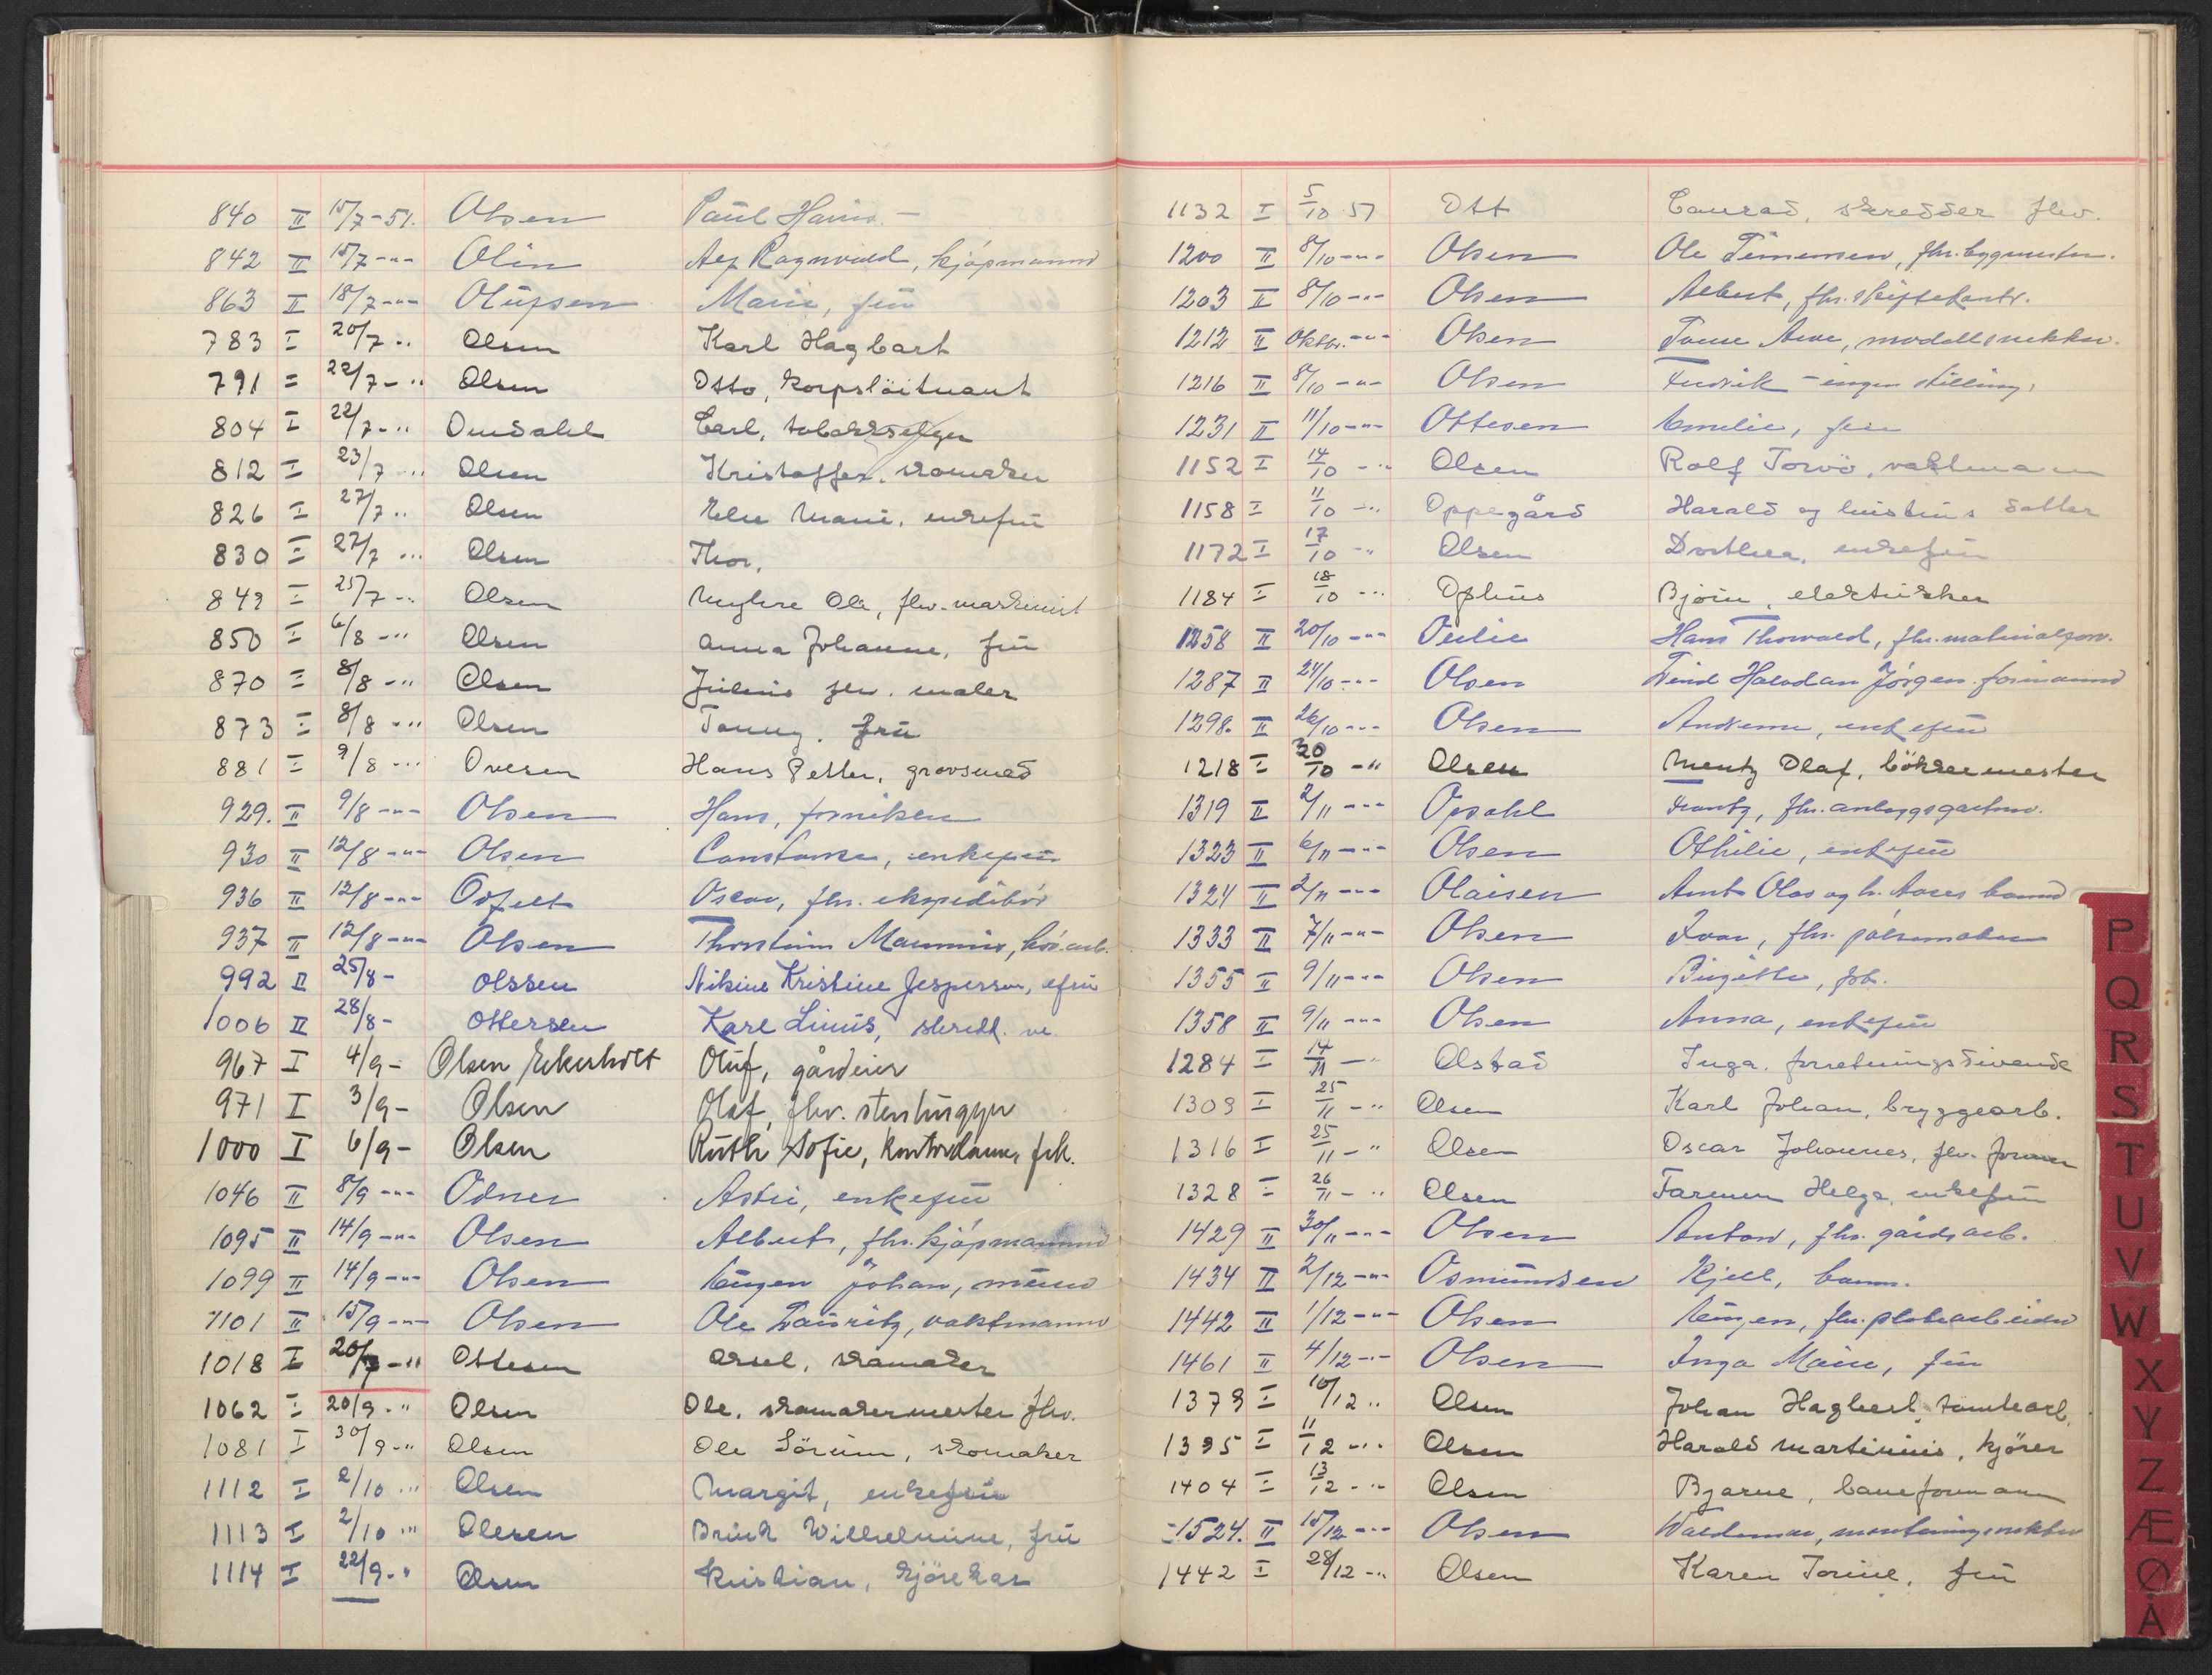 840 II 15/7-51. Olsen Paul Hans.-
842 II 15/7-"- Olin Alf Ragnvald, kjøpmann
863 II 18/7-"- Olufsen Marie, frü
783 I 20/7-" Olsen Karl Hagbart
791 = 22/7-" Olsen Otto, korpslöitnant
804 I 22/7-" Omdahl Carl, tobakkselger
812 I 23/7-" Olsen Kristoffer, skomaker
826 I 27/7-" Olsen Marie, enkefrü
830 I 27/7-" Olsen Thor,
849 I 25/7-" Olsen Ole, fhv. maskinist
850 I 6/8-" Olsen Anna Johanne, frü
870 I 8/8-" Olsen Julius fhv. maler
873 I 8/8-" Olsen Fanny, frü
881 I 9/8-" Ovesen Hans Petter, grovsmed
929. II 9/8-"- Olsen Hans, fornikler
930 II 12/8-"- Olsen Constanse, enkefrü
936 II 12/8-"- Odfelt Oscar, fhv. ekspeditör
937 II 12/8-"- Olsen Thorstein Magnus,
992 II 25/8- Olssen Nikine Kristine Jespersen, efrü
1006 II 28/8- Ottersen Karl Linus,
967 I 4/9- Olsen Ekerholt Oluf, gårdeier
971 I 3/9- Olsen Olaf, fhv. stenhugger
1000 I 6/9- Olsen Ruth Sofie, kontordame, frk.
1046 II 8/9-"- Odner Astri, enkefrü
1095 II 14/9-"- Olsen Albert, fhv. kjøpmann
1099 II 14/9-"- Olsen Eugen Johan, murer
1101 II 15/9-"- Olsen Ole Lauritz, vaktmann
1018 I 20/9-" Ottesen Aksel, skomaker
1062 I 20/9-" Olsen Ole, skomakermester fhv.
1081 I 30/9-" Olsen Ole Sörum, skomaker
1112 I 2/10-" Olsen Margit, enkefrü
1113 I 2/10-" Olesen Wilhelmine, frü
1114 I 22/9-" Olsen Kristian, kjörekar
1132 I 5/10-51 Ott Conrad, skredder fhv.
1200 II 8/10-"- Olsen Ole Timensen, fhv. byggmester.
1203 II 8/10-"- Olsen Albert, fhv. skiftekontr.
1212 II Oktbr.-"- Olsen modellsnekker.
1216 II 8/10-"- Olsen Fredrik - ingen stilling,
1231 II 11/10-"- Ottesen Emilie, frü
1152 I 14/10-" Olsen Rolf Torvö, vaktmann
1158 I 11/10-" Oppegård Harald og hustrus datter
1172 I 17/10-" Olsen Dorthea, enkefrü
1184 I 18/10-" Ophus Björn, elektriker
1258 II 20/10-"- Hans Thorvald, fhv. materialforv.
1287 II 24/10-"- Olsen Halvdan Jörgen. formann
1298. II 26/10-"- Olsen Andrine, enkefrü
1218 I 30/10-" Olsen Mentz Olaf, bökkermester
1319 II 2/11-"- Opsahl Frantz, fhv. anleggsgartner.
1323 II 6/11-"- Olsen Othilie, enkefrü
1324 II 2/11-"- Olaisen Arnt Olav og h. barn
1333 II 7/11-"- Olsen Ivar, fhv. pölsemaker
1355 II 9/11-"- Olsen Birgitte, frk.
1358 II 9/11-"- Olsen Anna, enkefrü
1284 I 14/11-" Olstad Inga, forretningsdrivende
1309 I 25/11-" Olsen Karl Johan, bryggearb.
1316 I 25/11-" Olsen Oscar Johannes, fhv. former
1328 I 26/11-" Olsen Helga, enkefrü
1429 II 30/11-"- Olsen Anton, fhv. gårdsarb.
1434 II 2/12-"- Osmundsen Kjell, barn.
1442 II 1/12-"- Olsen Eugen, fhv. platearbeider
1461 II 4/12-"- Olsen Inga Marie, frü
1379 I 10/12-" Olsen Johan Hagbert, tomtearb.
1395 I 11/12-" Olsen Harald Martinius, kjörer
1404 I 13/12-" Olsen Bjarne, baneformann
1524. II 15/12-"- Olsen Waldemar,
1442 I 28/12-" Olsen Karen Torine, frü
P
Q
R
S
T
U
V
W
X
Y
Z
Æ
Ø
Å